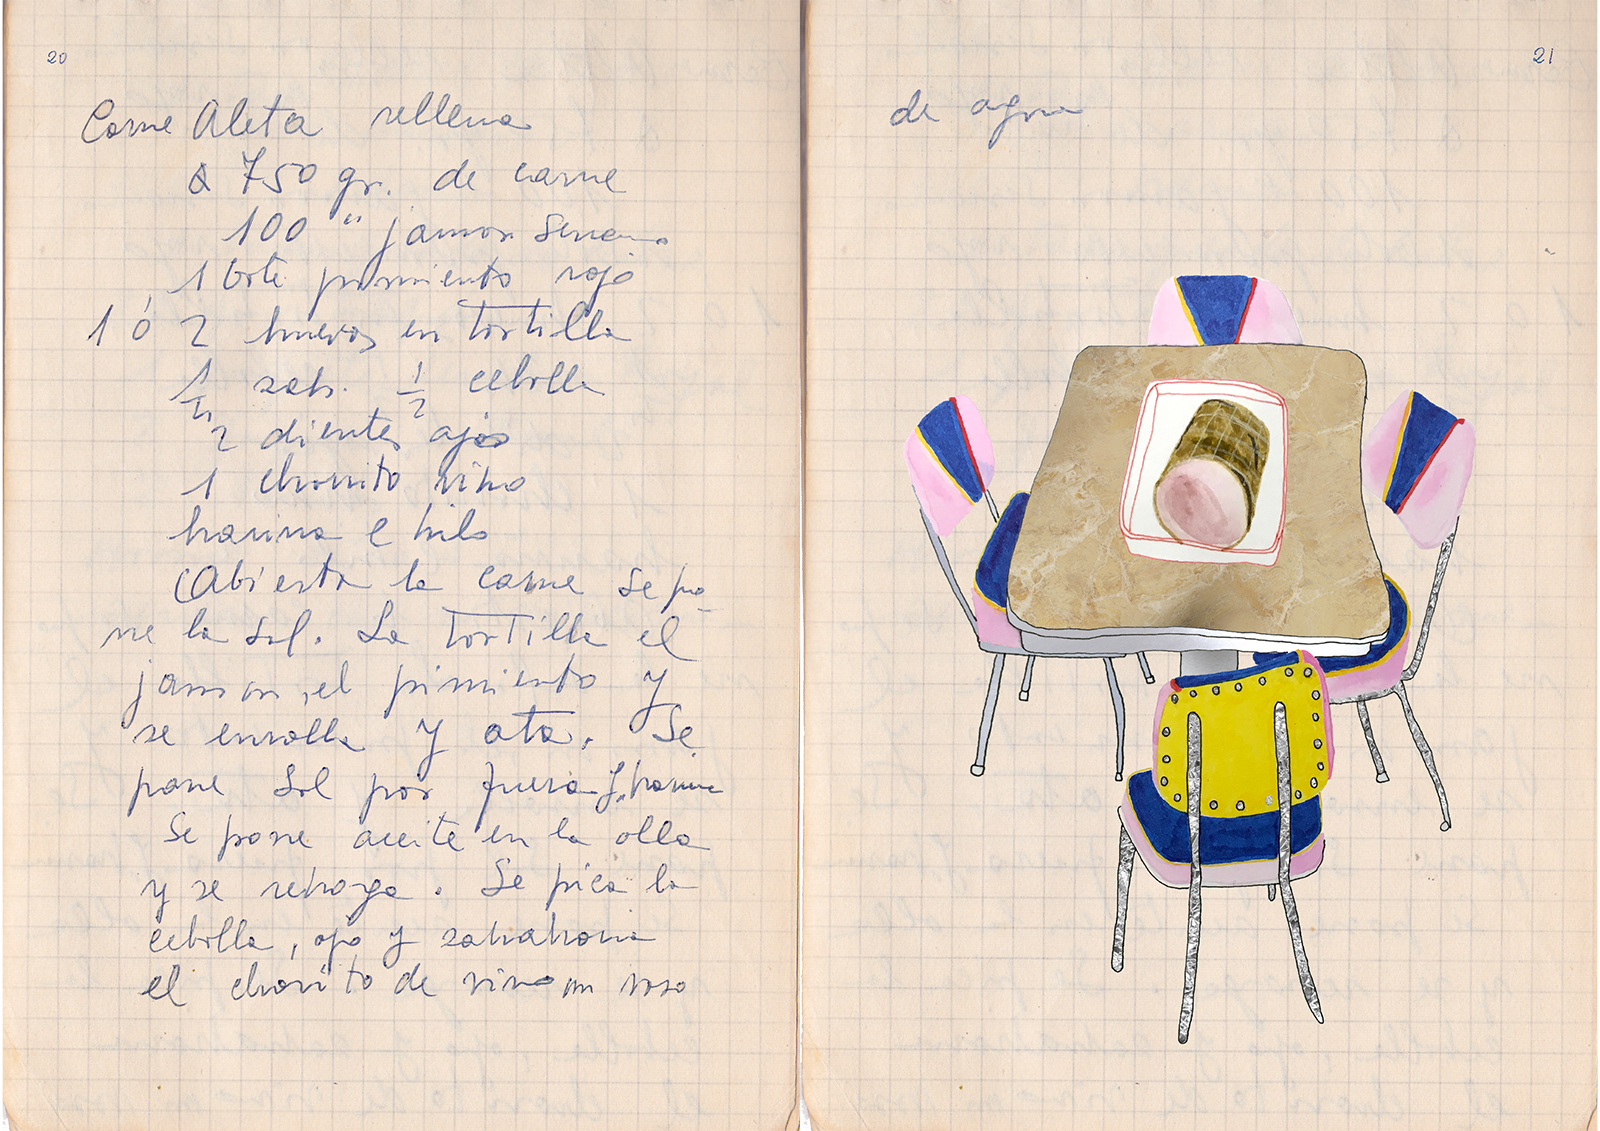 20
Carne Aleta rellena
750 gr. de carne
100 " jamon serrano
1 bote pimiento rojo
1 ó 2 huevos en tortilla
1/2 zah. 1/2 cebolla
2 dientes ajos
1 chorrito vino
harina e hilo
Abierta la carne se po-
ne la sal. La tortilla el
jamon, el pimiento y
se enrolla y ata. Se
pone sal por fuera y harina
Se pone aceite en la olla
y se rehoga. Se pica la
cebolla, ajo y zahahoria
el chorrito de vino un vaso
21
de agua